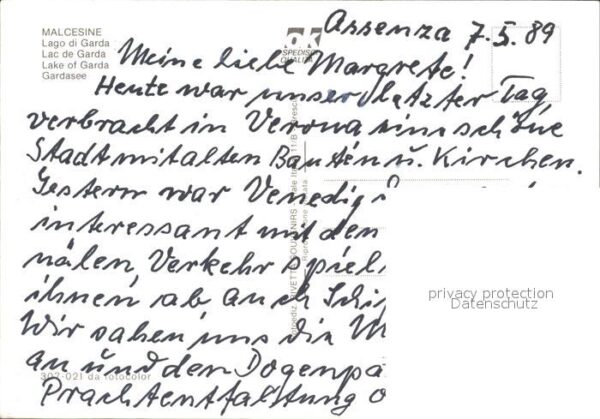 MALCESINE
Lago di Garda
Lac de Garda
Lake of Garda
Gardasee
SPEDISCI
QUALITÀ
Assenza 7.5.89
Meine liebe Margrete!
Heute war unser letzter Tag,
verbracht in Verona eine schöne
Stadt mit alten Bauten u. Kirchen.
Gestern war Venedig
interessant mit den
nälen, Verkehr spiel
ihnen ab auch Schi
Wir sahen uns die M
an und den Dogenpa
Prachtentfaltung
302-021 da fotocolor
privacy protection
Datenschutz